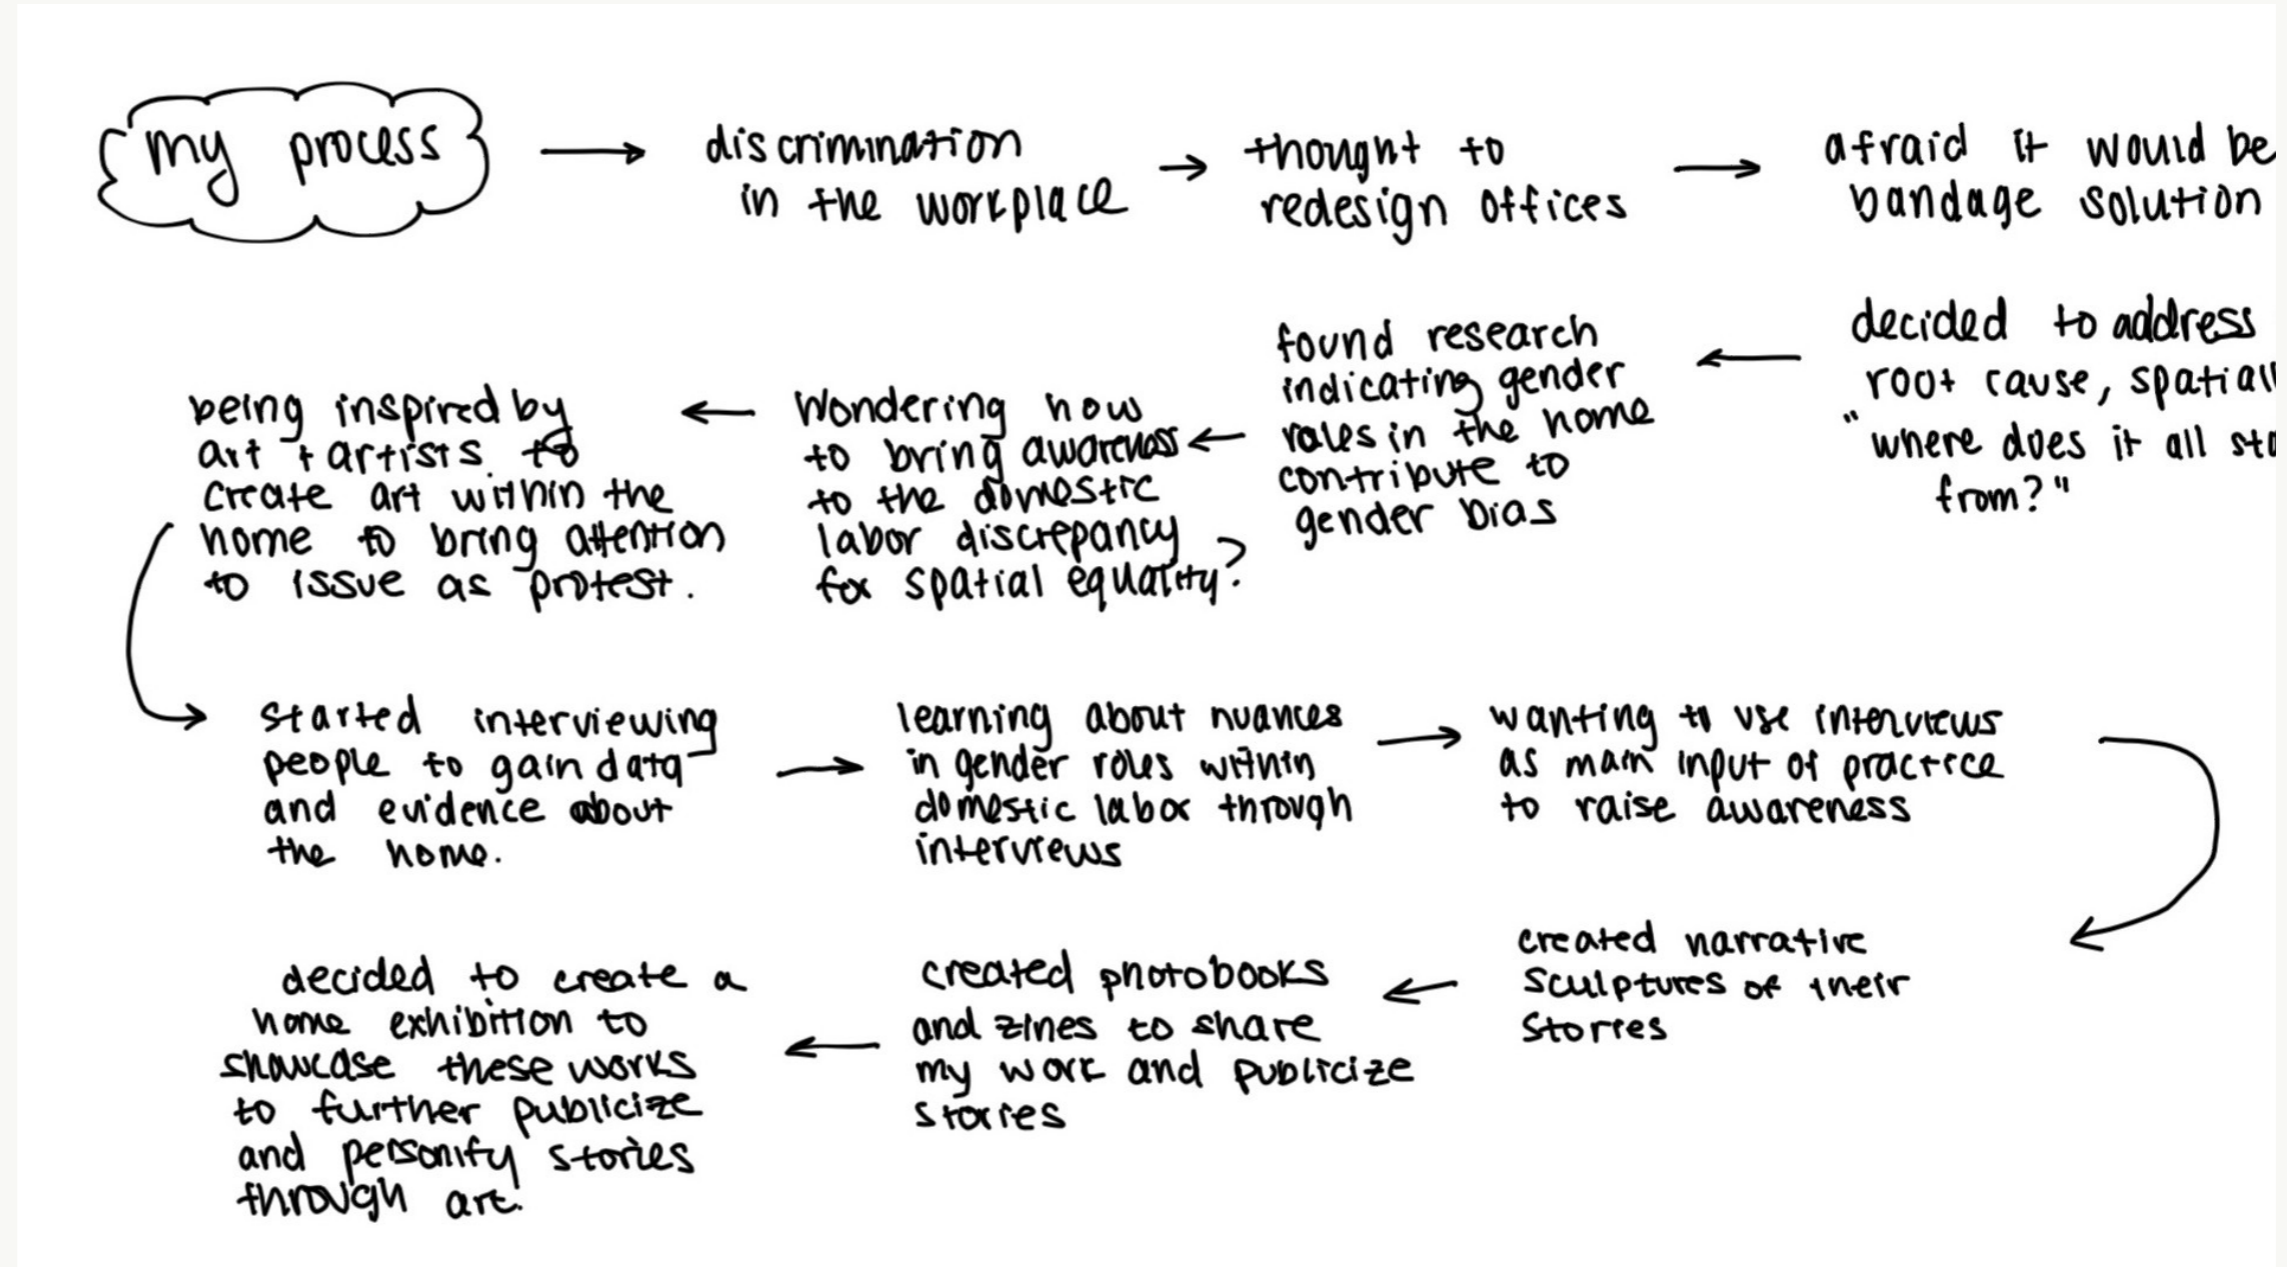 my process
discrimination
in the workplace
thought to
redesign offices
afraid it would be
bandage solution
decided to address
root cause, spatiall
"where does it all sta
from?"
found research
indicating gender
roles in the home
contribute to
gender bias
Wondering how
to bring awareness
to the domestic
labor discrepancy
for spatial equality?
being inspired by
art + artists to
create art within the
home to bring attention
to issue as protest.
started interviewing
people to gain data
and evidence about
the home.
learning about nuances
in gender roles within
domestic labor through
interviews
wanting to use interviews
as main input of practice
to raise awareness
created narrative
sculptures of their
stories
created photobooks
and zines to share
my work and publicize
stories
decided to create a
home exhibition to
showcase these works
to further publicize
and personify stories
through art.